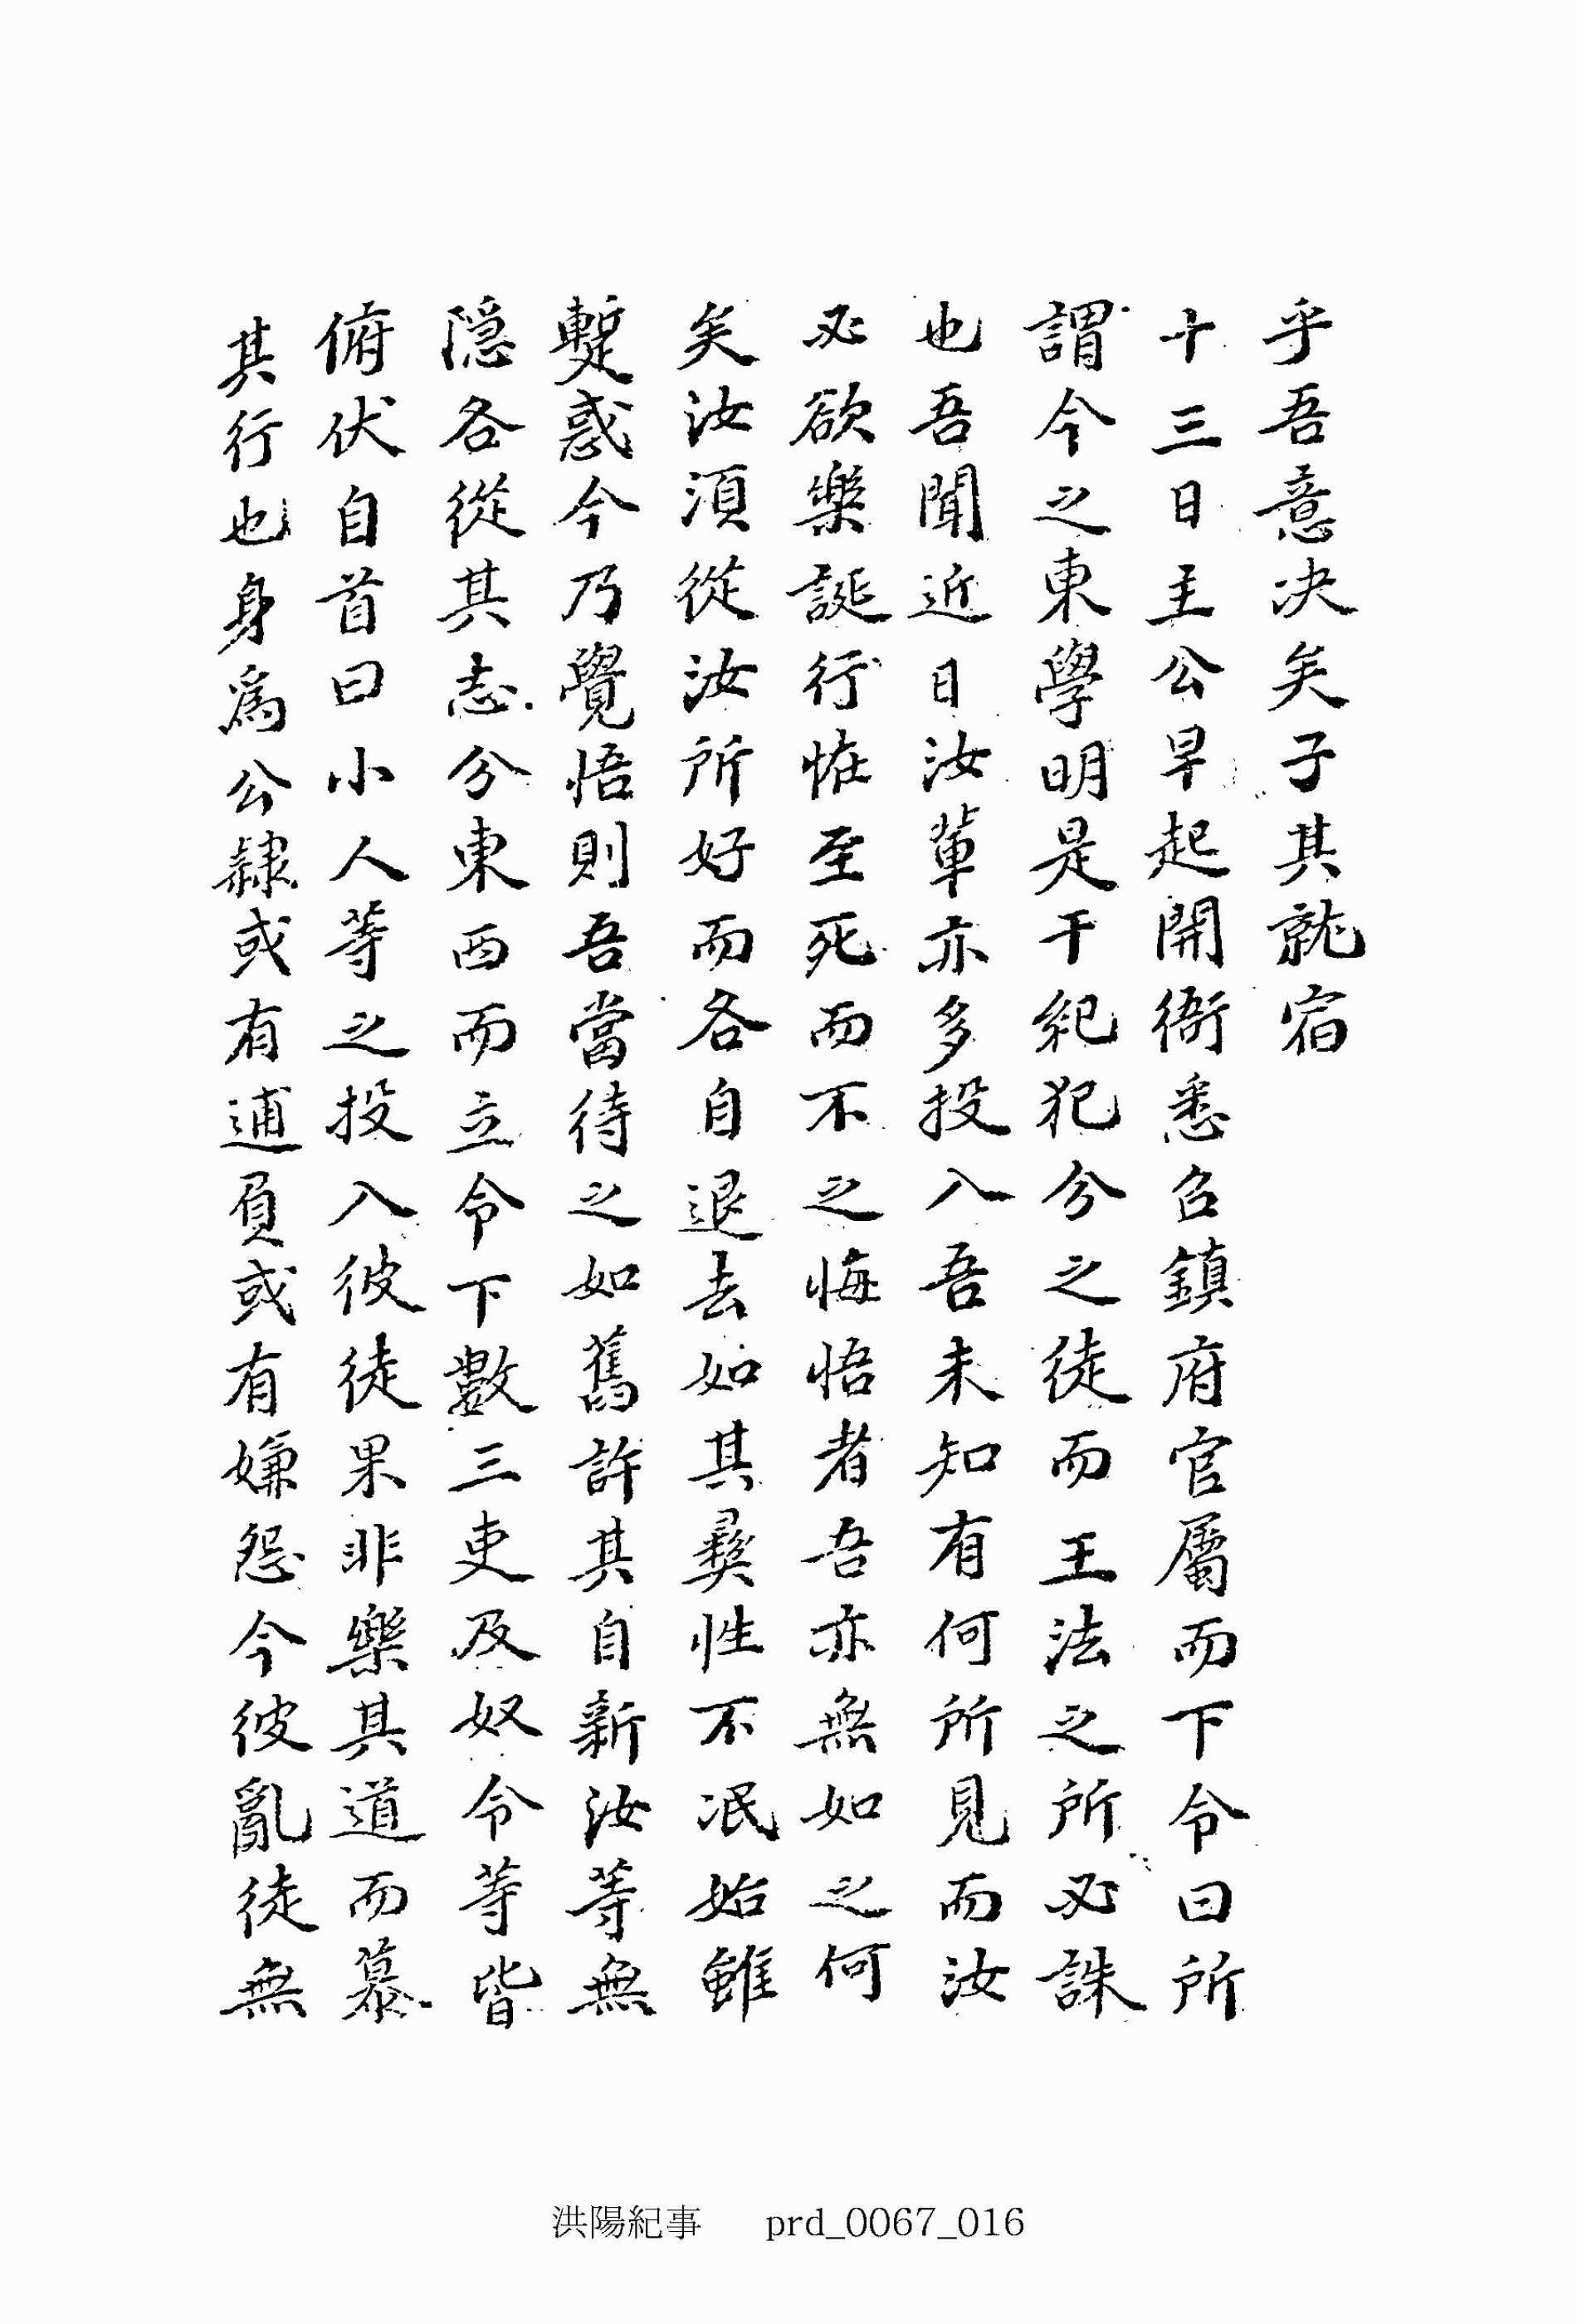 乎吾意決矣子其就宿
十三日主公早起開衙悉召鎮府官屬而下令曰所
謂今之東學明是干紀犯分之徒而王法之所必誅
也吾聞近日汝輩亦多投入吾未知有何所見而汝
必欲樂誕行恠至死而不之悔悟者吾亦無如之何
矣汝須從汝所好而各自退去如其彛性不泯始雖
蹔惑今乃覺悟則吾當待之如舊許其自新汝等無
隱各從其志分東西而立令下數三吏及奴令等皆
俯伏自首曰小人等之投入彼徒果非樂其道而慕
其行也身爲公隷或有逋負或有嫌怨今彼亂徒無
洪陽紀事 prd_0067_016